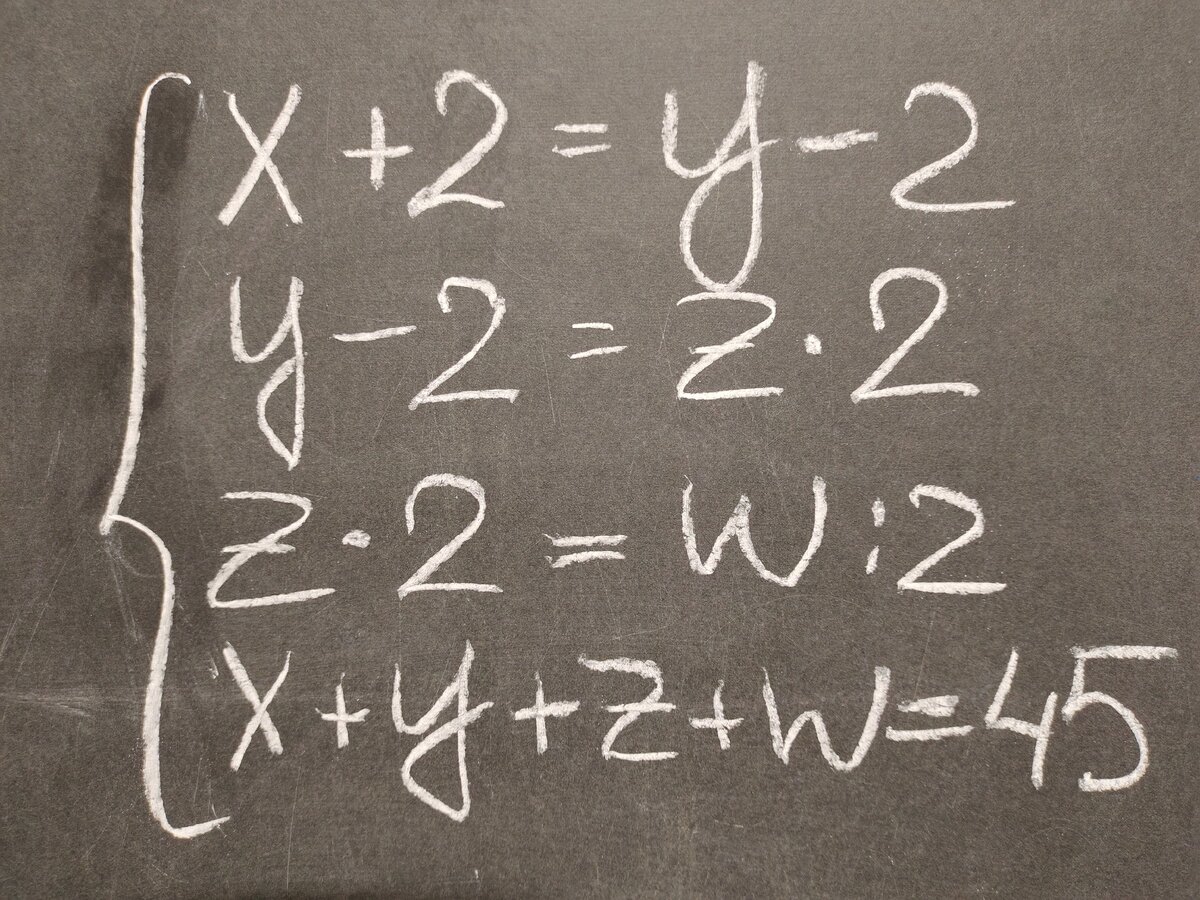 x + 2 = y - 2
y - 2 = z · 2
z · 2 = w : 2
x + y + z + w = 45